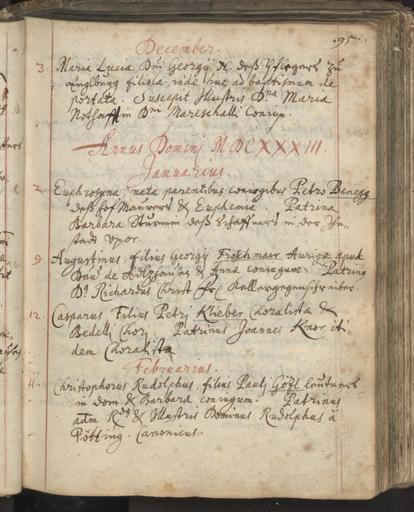 95
December
3. Maria Lucia Dni Georgij &c. deß Pflegers zu
filiola ad baptismum de
portata. Suscepit Illustris Dna Maria
Dni Mareschalli Coniup.
Annus Domini MDCXXXIII.
Januarius
2. Euphrosyna nata parentibus coniugibus Petro Benegg
deß hof Maurers & Euphemia. Patrina
Barbara deß Schaffners in der In
stadt Uxor.
9. Augustinus filius Georgij Froschmair Aurigæ apud
& Anna coniugum. Patrinus
Ds Richardus Christ
12. Casparus Filius Petri Klieber Choralistæ &
Bedelli Chori. Patrinus Joannes Knor it
dem Choralista
Februarius.
11. Christophorus Rudolphus, filius Pauli Leütners
im dom & Barbara coniugum. Patrinus
adm Rdus & Illustris Dominus Rudolphus à
Pötting. Canonicus.